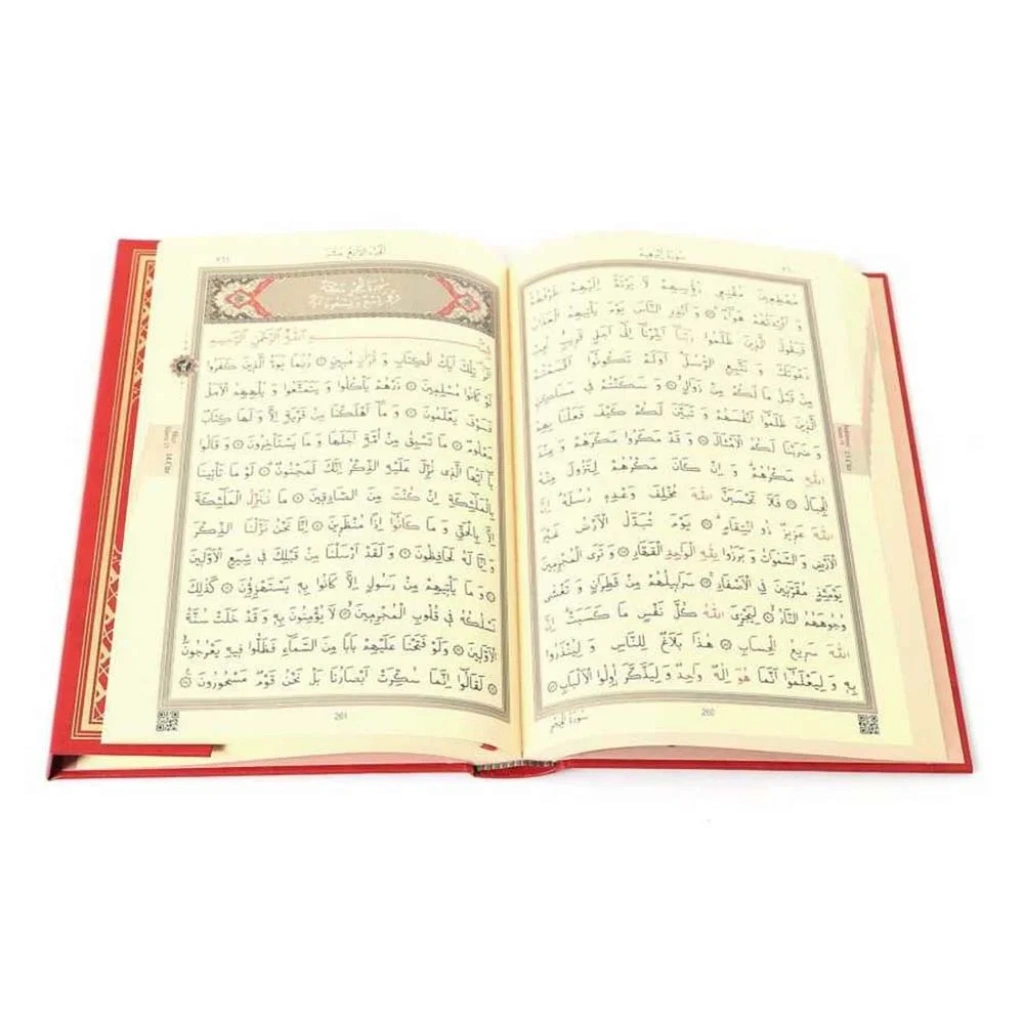 سُورَةُ إِبْرٰهِيمَ
٢٦٠
مُهْطِعِينَ مُقْنِعِي رُؤُسِهِمْ لَا يَرْتَدُّ إِلَيْهِمْ طَرْفُهُمْ
وَ أَفْئِدَتُهُمْ هَوَاءٌ ۝ وَ أَنْذِرِ النَّاسَ يَوْمَ يَأْتِيهِمُ الْعَذَابُ
فَيَقُولُ الَّذِينَ ظَلَمُوا رَبَّنَا أَخِّرْنَا إِلَى أَجَلٍ قَرِيبٍ نُجِبْ
دَعْوَتَكَ وَ نَتَّبِعِ الرُّسُلَ أَوَلَمْ تَكُونُوا أَقْسَمْتُمْ
مِنْ قَبْلُ مَا لَكُمْ مِنْ زَوَالٍ ۝ وَ سَكَنْتُمْ فِي مَسَاكِنِ
الَّذِينَ ظَلَمُوا أَنْفُسَهُمْ وَ تَبَيَّنَ لَكُمْ كَيْفَ فَعَلْنَا بِهِمْ
وَ ضَرَبْنَا لَكُمُ الْأَمْثَالَ ۝ وَ قَدْ مَكَرُوا مَكْرَهُمْ وَ عِنْدَ
اللّٰهِ مَكْرُهُمْ وَ إِنْ كَانَ مَكْرُهُمْ لِتَزُولَ مِنْهُ
الْجِبَالُ ۝ فَلَا تَحْسَبَنَّ اللّٰهَ مُخْلِفَ وَعْدِهِ رُسُلَهُ إِنَّ
اللّٰهَ عَزِيزٌ ذُو انْتِقَامٍ ۝ يَوْمَ تُبَدَّلُ الْأَرْضُ غَيْرَ
الْأَرْضِ وَ السَّمٰوَاتُ وَ بَرَزُوا لِلّٰهِ الْوَاحِدِ الْقَهَّارِ ۝ وَ تَرَى الْمُجْرِمِينَ
يَوْمَئِذٍ مُقَرَّنِينَ فِي الْأَصْفَادِ ۝ سَرَابِيلُهُمْ مِنْ قَطِرَانٍ وَ تَغْشَى
وُجُوهَهُمُ النَّارُ ۝ لِيَجْزِيَ اللّٰهُ كُلَّ نَفْسٍ مَا كَسَبَتْ إِنَّ
اللّٰهَ سَرِيعُ الْحِسَابِ ۝ هٰذَا بَلَاغٌ لِلنَّاسِ وَ لِيُنْذَرُوا
بِهِ وَ لِيَعْلَمُوا أَنَّمَا هُوَ إِلٰهٌ وَاحِدٌ وَ لِيَذَّكَّرَ أُولُوا الْأَلْبَابِ ۝
260
سُورَةُ الْحِجْرِ
الْجُزْءُ الرَّابِعَ عَشَرَ
٢٦١
اللّٰهِ الرَّحْمٰنِ الرَّحِيمِ
الٓرٰ تِلْكَ اٰيَاتُ الْكِتَابِ وَ قُرْاٰنٍ مُبِينٍ ۝ رُبَمَا يَوَدُّ الَّذِينَ كَفَرُوا
لَوْ كَانُوا مُسْلِمِينَ ۝ ذَرْهُمْ يَأْكُلُوا وَ يَتَمَتَّعُوا وَ يُلْهِهِمُ الْأَمَلُ
فَسَوْفَ يَعْلَمُونَ ۝ وَ مَا أَهْلَكْنَا مِنْ قَرْيَةٍ إِلَّا وَ لَهَا كِتَابٌ
مَعْلُومٌ ۝ مَا تَسْبِقُ مِنْ أُمَّةٍ أَجَلَهَا وَ مَا يَسْتَأْخِرُونَ ۝ وَ قَالُوا
يَا أَيُّهَا الَّذِي نُزِّلَ عَلَيْهِ الذِّكْرُ إِنَّكَ لَمَجْنُونٌ ۝ لَوْ مَا تَأْتِينَا
بِالْمَلٰئِكَةِ إِنْ كُنْتَ مِنَ الصَّادِقِينَ ۝ مَا نُنَزِّلُ الْمَلٰئِكَةَ
إِلَّا بِالْحَقِّ وَ مَا كَانُوا إِذًا مُنْظَرِينَ ۝ إِنَّا نَحْنُ نَزَّلْنَا الذِّكْرَ
وَ إِنَّا لَهُ لَحَافِظُونَ ۝ وَ لَقَدْ أَرْسَلْنَا مِنْ قَبْلِكَ فِي شِيَعِ الْأَوَّلِينَ
۝ وَ مَا يَأْتِيهِمْ مِنْ رَسُولٍ إِلَّا كَانُوا بِهِ يَسْتَهْزِؤُنَ ۝ كَذٰلِكَ
نَسْلُكُهُ فِي قُلُوبِ الْمُجْرِمِينَ ۝ لَا يُؤْمِنُونَ بِهِ وَ قَدْ خَلَتْ سُنَّةُ
الْأَوَّلِينَ ۝ وَلَوْ فَتَحْنَا عَلَيْهِمْ بَابًا مِنَ السَّمَاءِ فَظَلُّوا فِيهِ يَعْرُجُونَ
۝ لَقَالُوا إِنَّمَا سُكِّرَتْ أَبْصَارُنَا بَلْ نَحْنُ قَوْمٌ مَسْحُورُونَ ۝
261